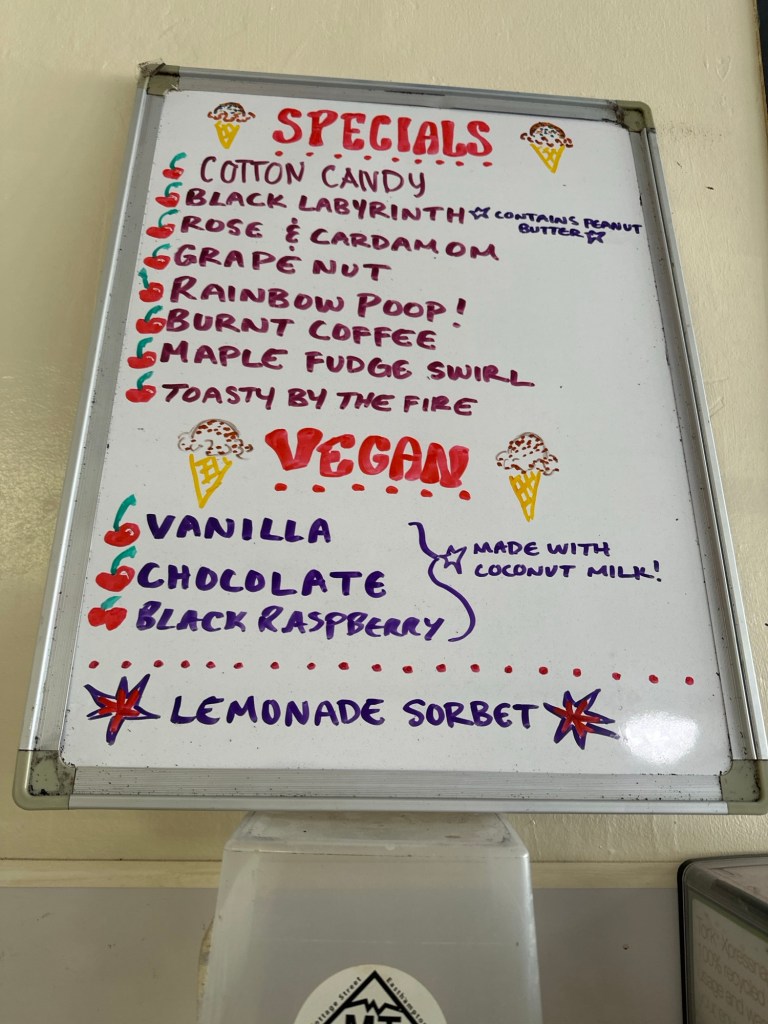 SPECIALS
COTTON CANDY
BLACK LABYRINTH ☆ CONTAINS PEANUT
BUTTER ☆
ROSE & CARDAMOM
GRAPE NUT
RAINBOW POOP!
BURNT COFFEE
MAPLE FUDGE SWIRL
TOASTY BY THE FIRE
VEGAN
VANILLA
CHOCOLATE
BLACK RASPBERRY
MADE WITH
COCONUT MILK!
LEMONADE SORBET
Cottage Street
Easthampton
MT